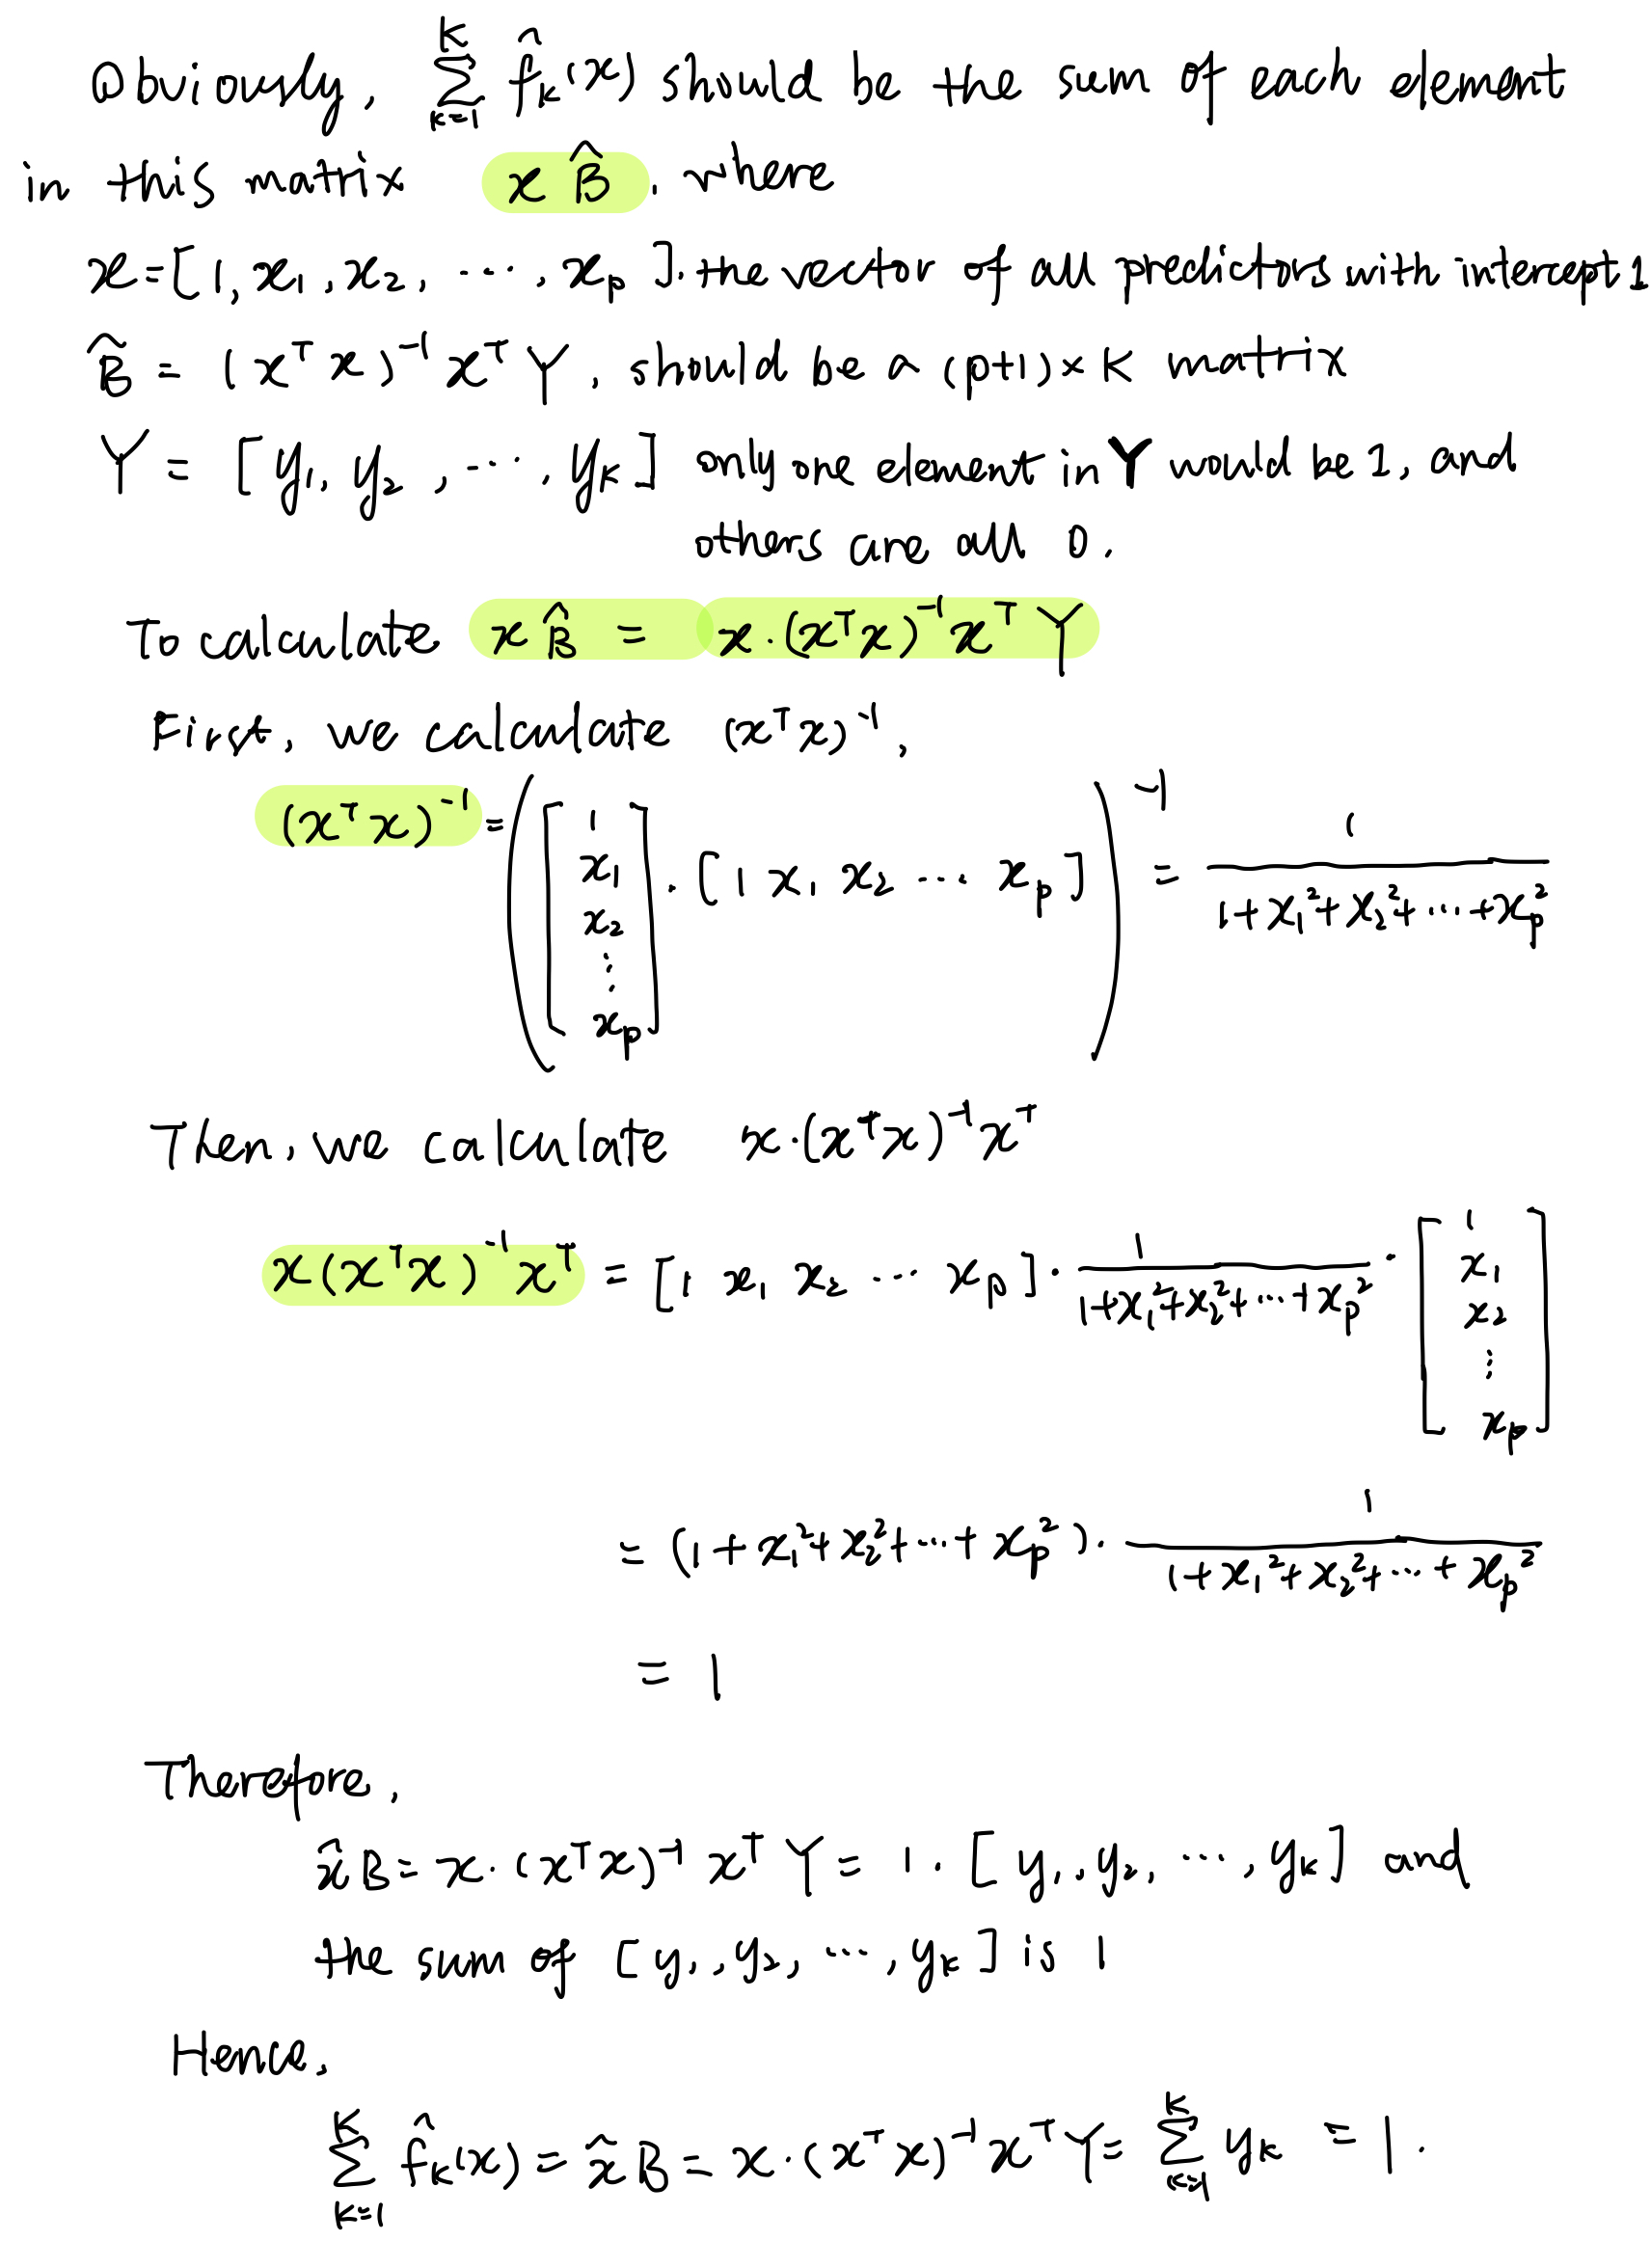 Obviously, $\sum_{k=1}^{K} \hat{f}_k(x)$ should be the sum of each element
in this matrix $x\hat{B}$, where
$x = [1, x_1, x_2, \cdots, x_p]$, the vector of all predictors with intercept 1
$\hat{B} = (x^T x)^{-1} x^T Y$, should be a $(p+1) \times K$ matrix
$Y = [y_1, y_2, \cdots, y_K]$ only one element in Y would be 1, and
others are all 0.
To calculate $x\hat{B} = x \cdot (x^T x)^{-1} x^T Y$
First, we calculate $(x^T x)^{-1}$,
$(x^T x)^{-1} = \left( \begin{bmatrix} 1 \\ x_1 \\ x_2 \\ \vdots \\ x_p \end{bmatrix} \cdot [1 \; x_1 \; x_2 \cdots x_p] \right)^{-1} = \frac{1}{1 + x_1^2 + x_2^2 + \cdots + x_p^2}$
Then, we calculate $x \cdot (x^T x)^{-1} x^T$
$x(x^T x)^{-1} x^T = [1 \; x_1 \; x_2 \cdots x_p] \cdot \frac{1}{1 + x_1^2 + x_2^2 + \cdots + x_p^2} \cdot \begin{bmatrix} 1 \\ x_1 \\ x_2 \\ \vdots \\ x_p \end{bmatrix}$
$= (1 + x_1^2 + x_2^2 + \cdots + x_p^2) \cdot \frac{1}{1 + x_1^2 + x_2^2 + \cdots + x_p^2}$
$= 1$
Therefore,
$\hat{x} B = x \cdot (x^T x)^{-1} x^T Y = 1 \cdot [y_1, y_2, \cdots, y_K]$ and
the sum of $[y_1, y_2, \cdots, y_K]$ is 1
Hence,
$\sum_{k=1}^{K} \hat{f}_k(x) = \hat{x} B = x \cdot (x^T x)^{-1} x^T Y = \sum_{k=1}^{K} y_k = 1.$